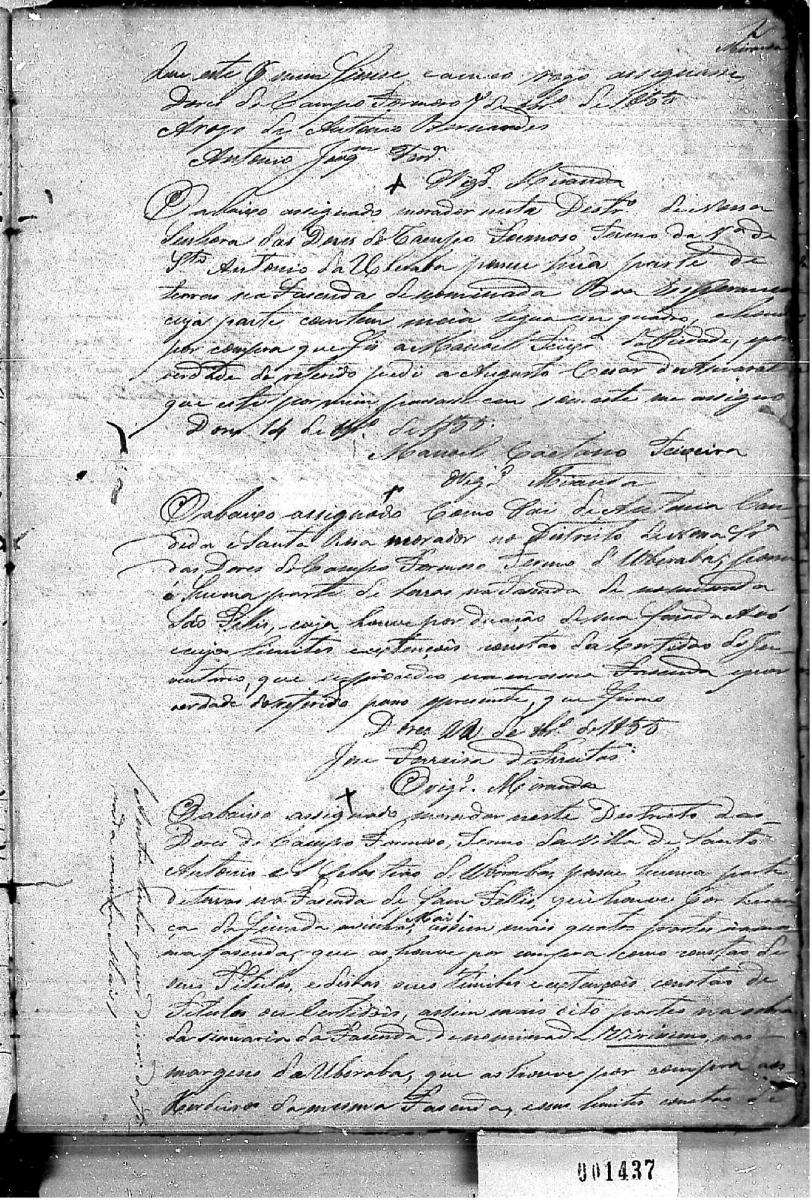 2
Miranda
que este por mim fizesse e a meu rogo assignasse
Dores do Campo Formoso 7 de 8br.o de 1855
Arogo de Antonio Bernardes
Antonio Joaq.m Ferr.a
Vig.o Miranda
O abaixo assignado morador nesta Destr.o de Nossa
Senhora das Dores do Campo Formoso Termo da V.a de
St.o Antonio da Uberaba possue huma parte de
terras na Fasenda denominada Boa
cuja parte contem meia legua em quadro, e houve
por compra que fes a Manoel da Piedade, e por
verdade do referido pedi a Augusto Cesar do Amaral
que este por mim passasse em somente me assigno
Dores 14 de de 1855.
Manoel Caetano Teixeira
Vig.o Miranda
O abaixo assignado Como Pai de Antonia Can-
dida e Santa Anna morador no Distrito de Nossa Sr.a
das Dores do Campo Formoso Termo d'Uberaba, possue
huma parte de terras na Fasenda de nominada
São Fellis, cuja houve por doação de sua finada Avó
cujos limites e extençois constão da Certidão do In-
ventario, que se procedeo na mesma Fasenda e por
verdade do referido paso apresente, que firmo
Dores 22 de de 1855
Jose Ferreira de Freitas
O vig.o Miranda
O abaixo assignado morador neste Destricto das
Dores do Campo Formoso, Termo da Villa de Santo
Antonio e S. Sebastião d'Uberaba, possue huma parte
de terras na Fasenda de Sam Fellis, que houve por heran-
ça da finada minha Mai, assim mais quatro partes na mes-
ma fasenda, que as houve por compra como constão de
seus Titulos, e distas seus limites e extençois constão de
Titulos ou Certidois, assim mais oito partes na
da simaria da Fasenda denominada nas
margens da Uberaba, que as houve por compra aos
Herdeiros da mesma Fasenda, e seus limites constão de
001437